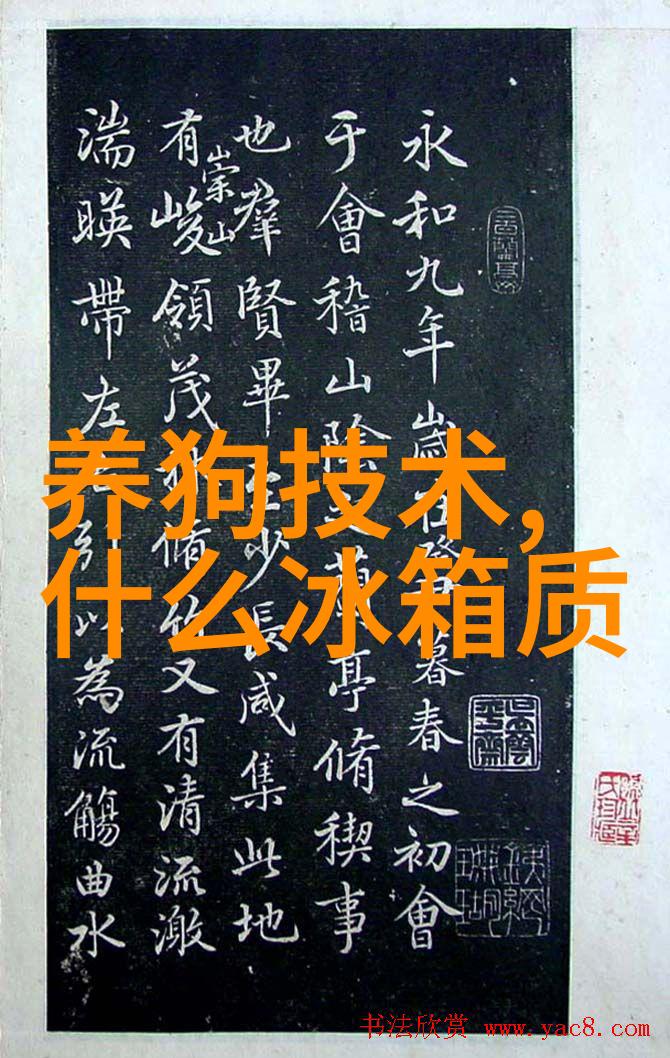 永和九年歲在暮春之初會
于會稽山陰蘭亭脩稧事
也羣賢畢少長咸集此地
有崇山峻領茂脩竹又有清流激
湍暎帶左引以為流觴曲水
养狗技术,
什么冰箱质
书法欣赏 www.yac8.com